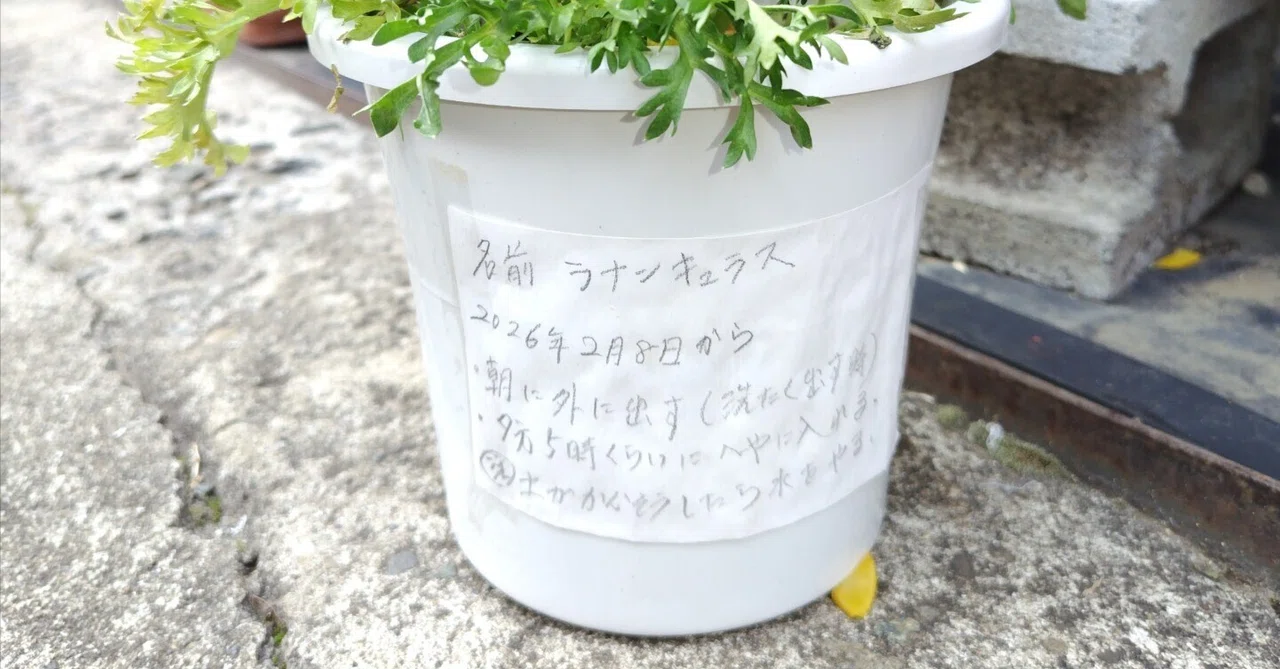 名前 ラナンキュラス
2026年2月8日から
・朝に外に出す(洗たく出す時)
・夕方5時くらいにへやに入れる。
土がかんそうしたら水をやる。